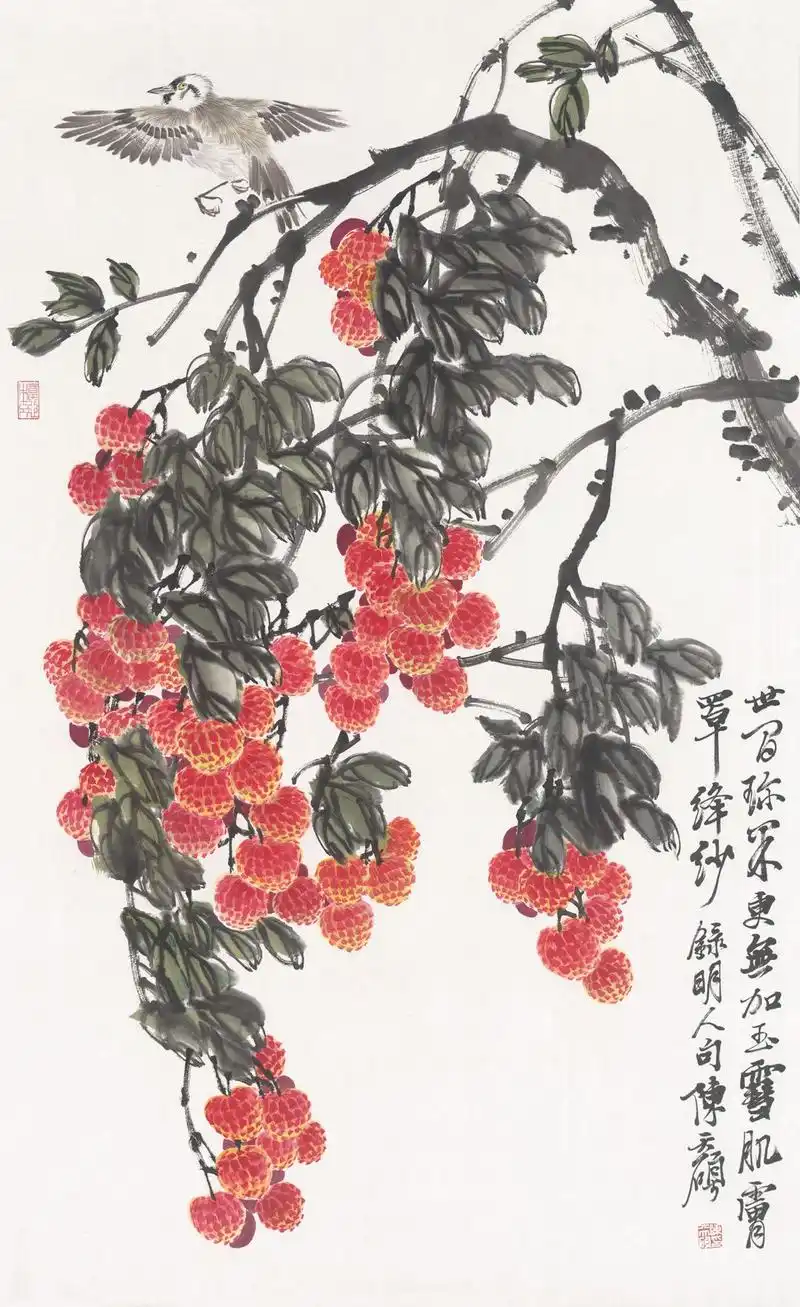 世間珍果更無加玉雪肌膚
罩絳紗 錄明人句 陳天碩